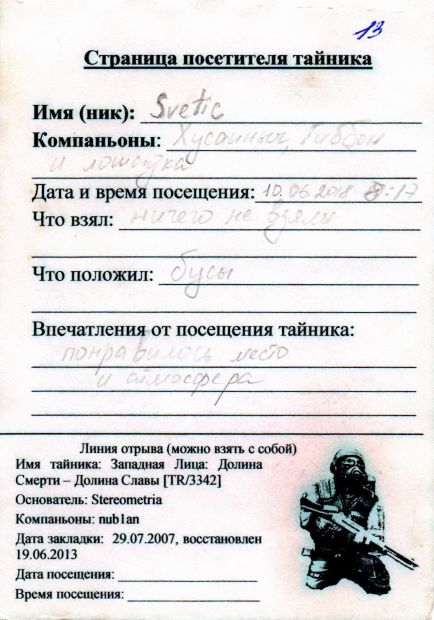 13
Страница посетителя тайника
Имя (ник): Svetic
Компаньоны: Хусаиныч, Гиббон
и лошадка
Дата и время посещения: 10.06.2018 8:17
Что взял: ничего не взяли
Что положил: бусы
Впечатления от посещения тайника:
понравилось место
и атмосфера
Линия отрыва (можно взять с собой)
Имя тайника: Западная Лица: Долина
Смерти – Долина Славы [TR/3342]
Основатель: Stereometria
Компаньоны: nub1an
Дата закладки: 29.07.2007, восстановлен
19.06.2013
Дата посещения:
Время посещения: